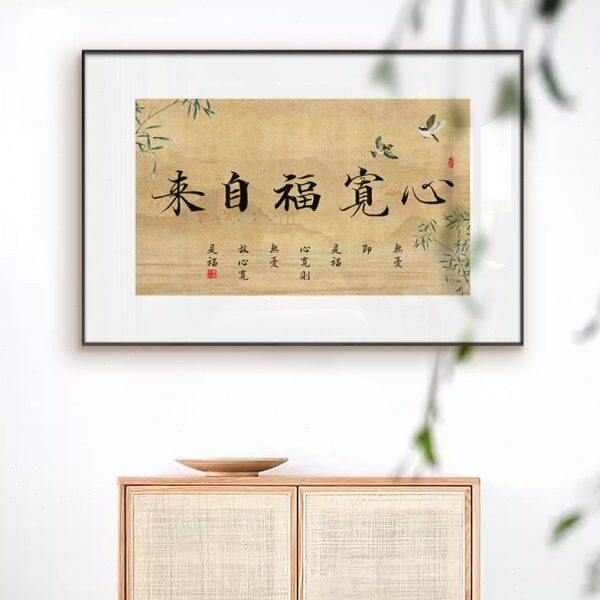 心寬福自来
無憂
即
是福
心寬則
無憂
故心寬
是福